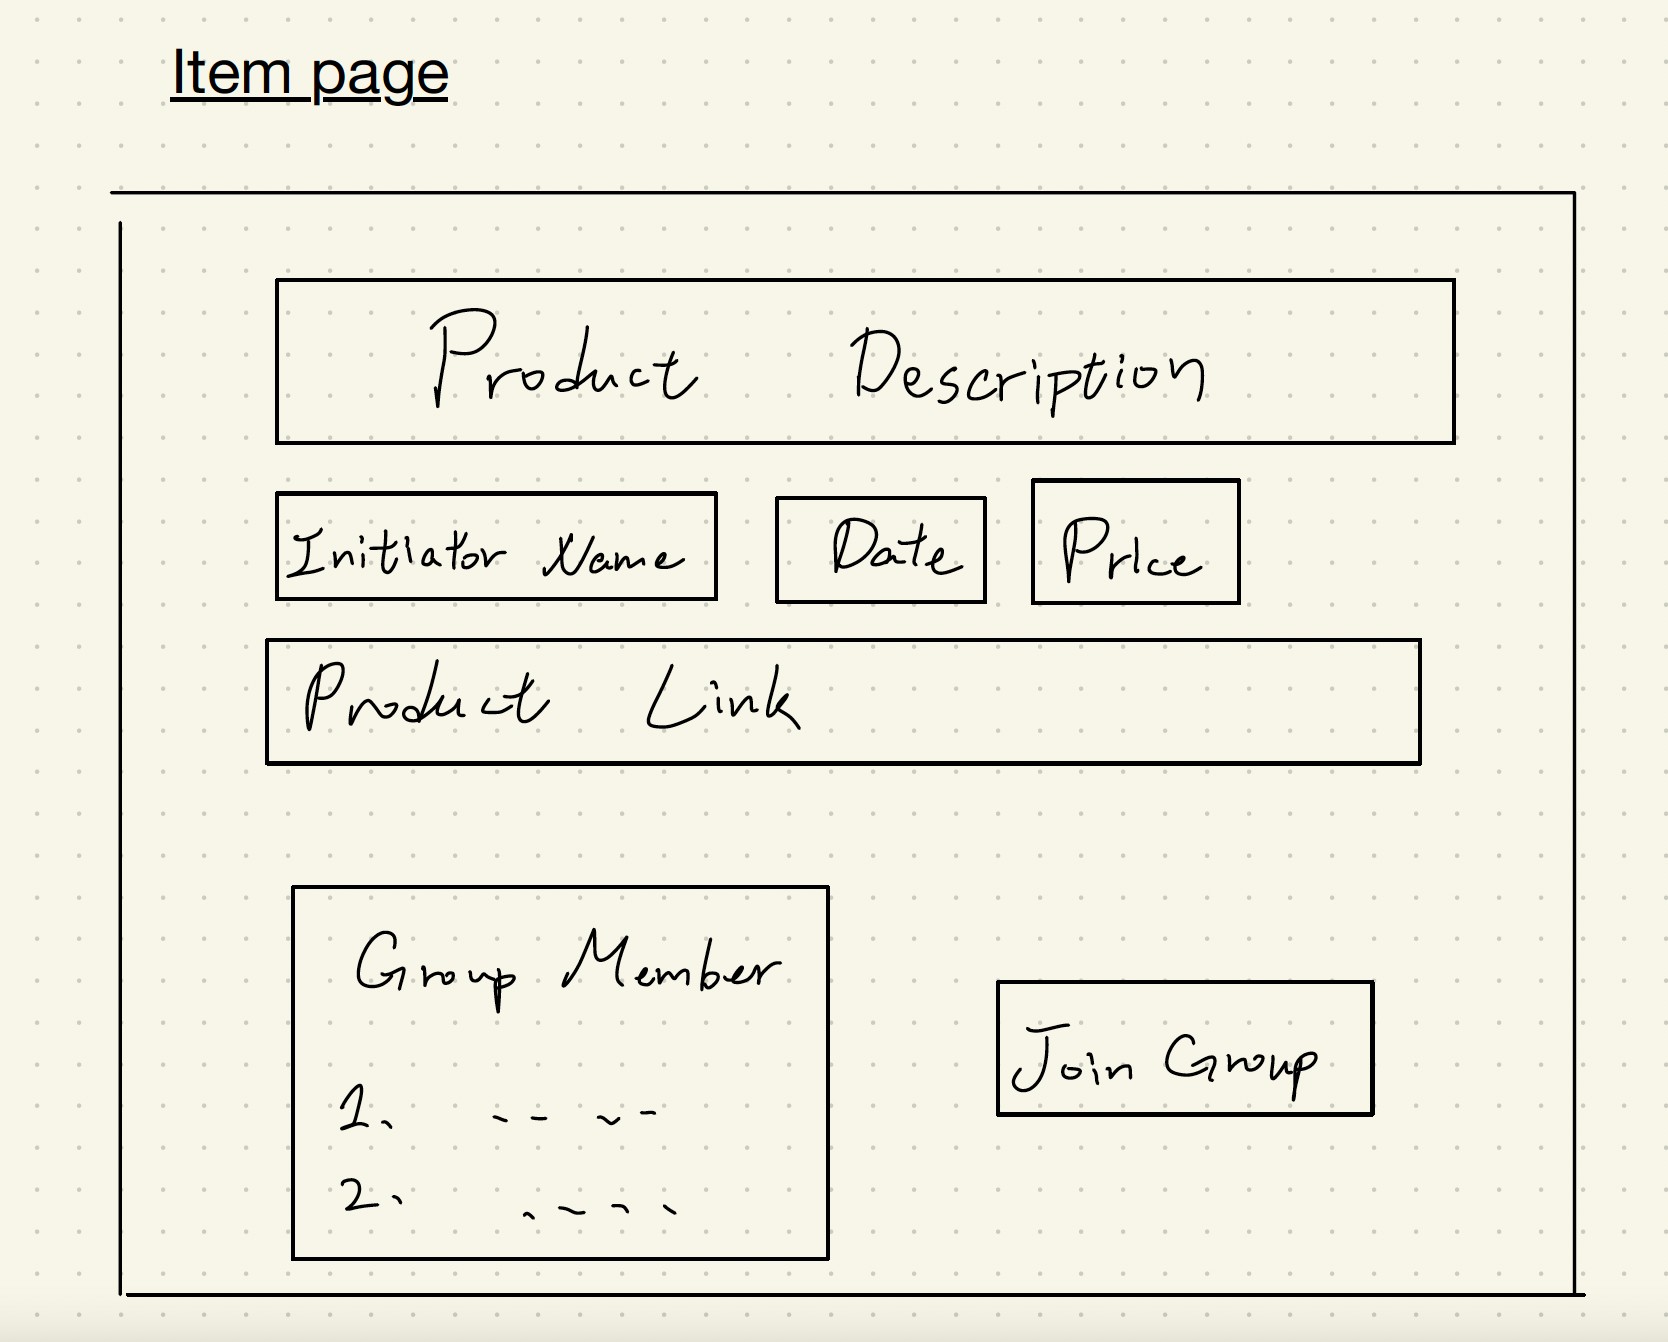 Item page
Product Description
Initiator Name Date Price
Product Link
Group Member
Join Group
1.
2.